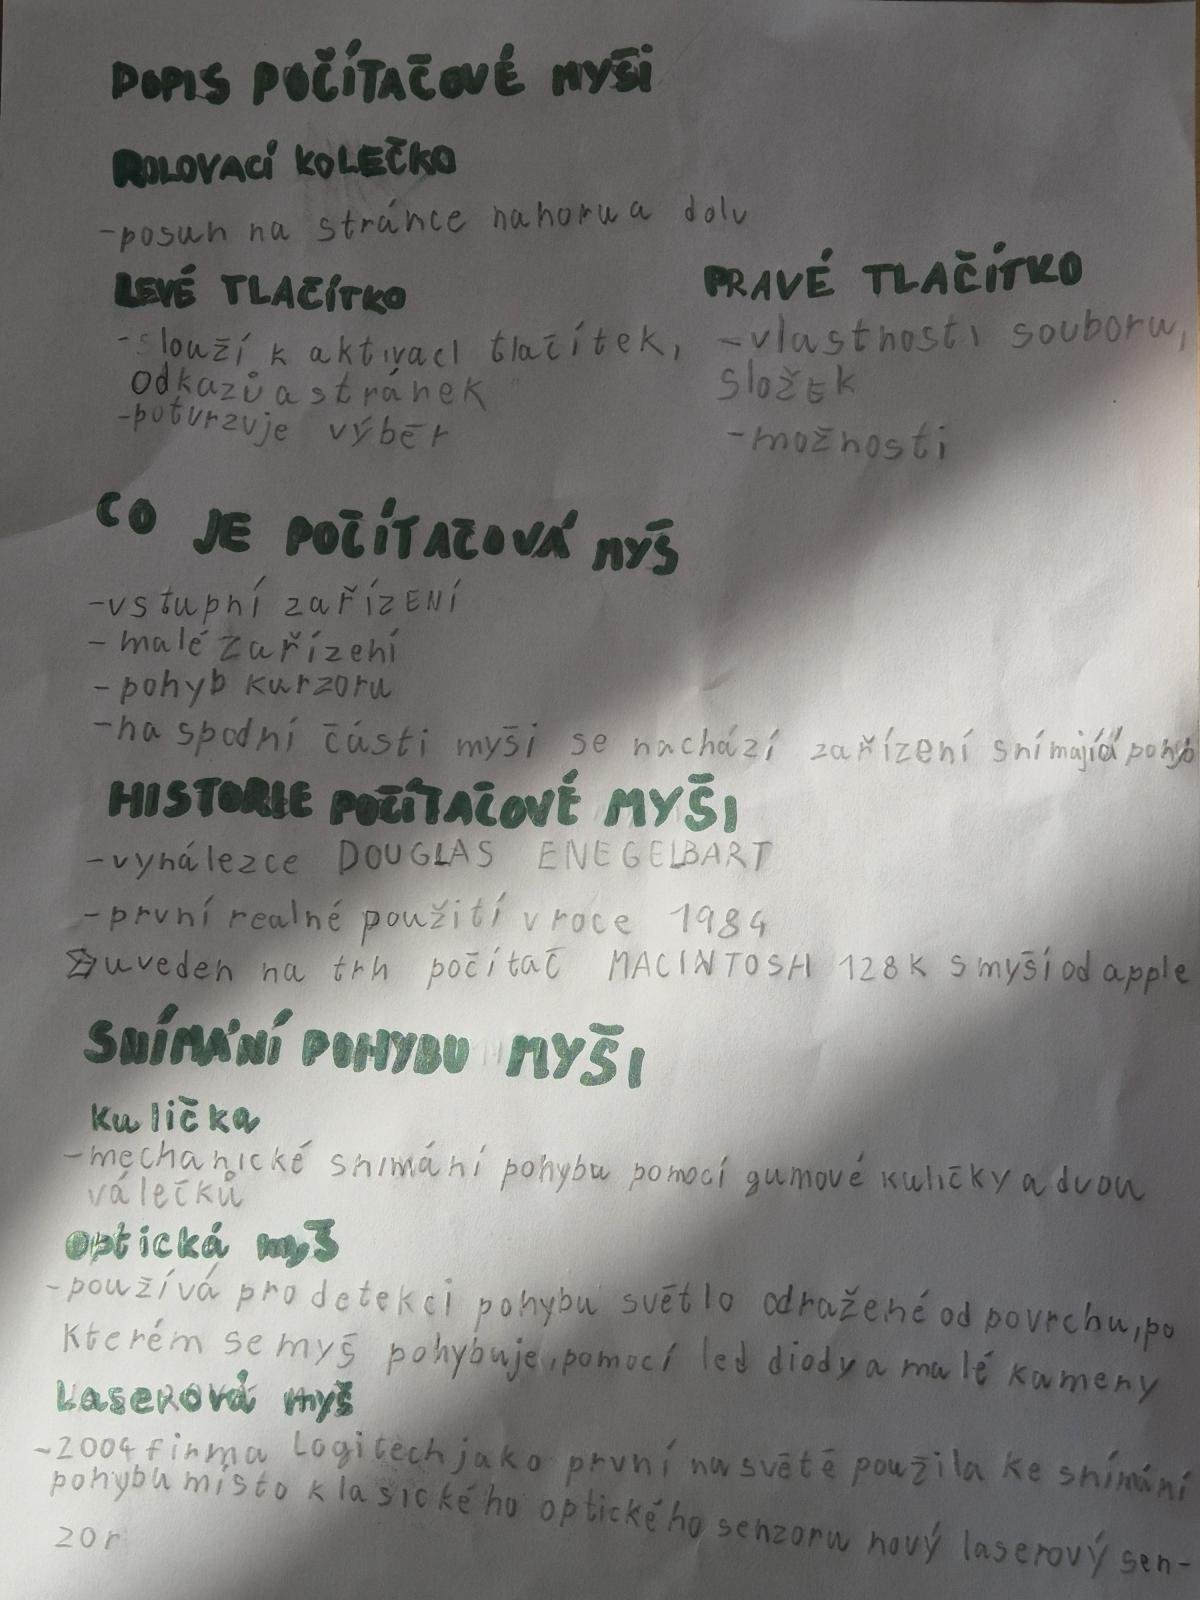 POPIS POČÍTAČOVÉ MYŠI
ROLOVACÍ KOLEČKO
-posun na stránce nahoru a dolu
LEVÉ TLAČÍTKO
-slouží k aktivaci tlačítek,
odkazů a stránek
-potvrzuje výběr
PRAVÉ TLAČÍTKO
-vlastnosti souboru,
složek
-možnosti
CO JE POČÍTAČOVÁ MYŠ
-vstupní zařízENÍ
-malé zařízení
-pohyb kurzoru
-na spodní části myši se nachází zařízení snímající pohyb
HISTORIE POČÍTAČOVÉ MYŠI
-vynálezce DOUGLAS ENEGELBART
-první realné použití v roce 1984
uveden na trh počítač MACINTOSH 128K s myší od apple
SNÍMÁNÍ POHYBU MYŠI
kulička
-mechanické snímání pohybu pomocí gumové kuličky a dvou
válečků
optická myš
-používá pro detekci pohybu světlo odražené od povrchu, po
kterém se myš pohybuje, pomocí led diody a malé kamery
Laserová myš
-2004 firma Logitech jako první na světě použila ke snímání
pohybu místo klasického optického senzoru nový laserový sen-
zor